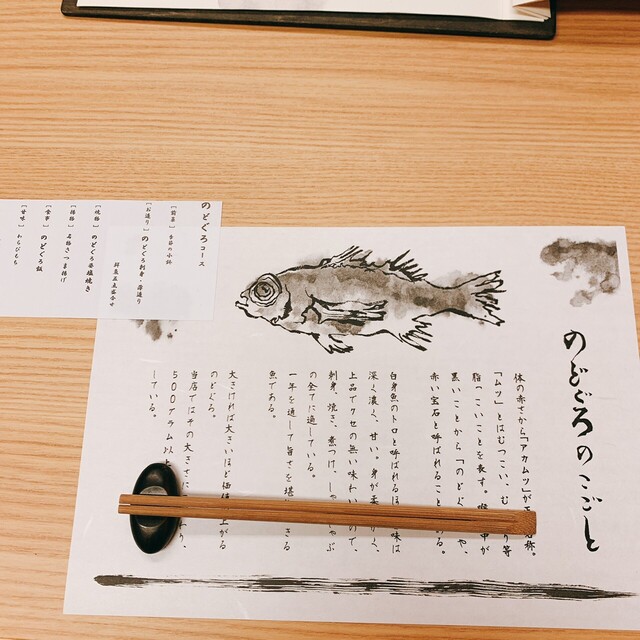 のどぐろコース
［前菜］季節の小鉢
［お造り］のどぐろ刺身・一品造り
鮮魚五点盛合せ
［焼物］のどぐろ姿塩焼き
［揚物］名物さつま揚げ
［食事］のどぐろ飯
［甘味］わらびもち
のどぐろのこごと
体の赤さから「アカムツ」が正 名称。
「ムツ」とはむつこい、む り等
脂 こいことを表す。喉 中が
黒いことから「のどぐ や、
赤い宝石と呼ばれること ある。
白身魚のトロと呼ばれるほ 味は
深く濃く、甘い。身が柔 く、
上品でクセの無い味わい ので、
刺身、焼き、煮つけ、しゃ しゃぶ
の全てに適している。
一年を通して旨さを堪 きる
魚である。
大きければ大きいほど価値 上がる
のどぐろ。
当店ではその大きさに り、
500グラム以
している。